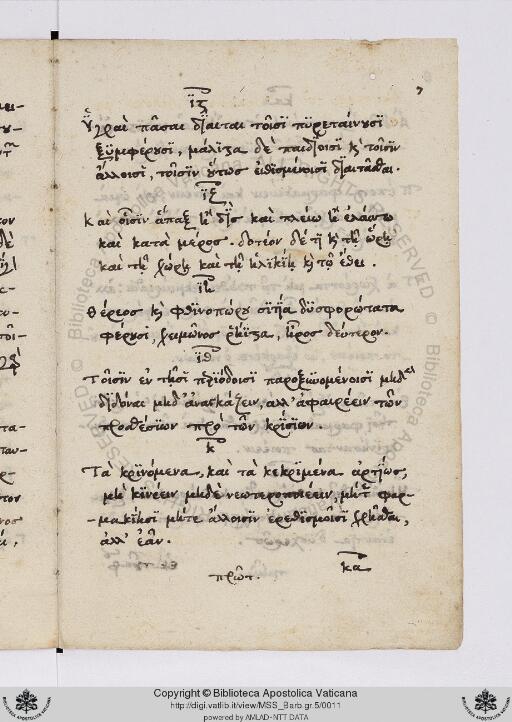 ιϛ
Ὑγραὶ πᾶσαι δίαιται τοῖσι πυρεταίνουσι
ξυμφέρουσι, μάλιστα δὲ παιδίοισι κ τοῖσιν
ἄλλοισι, τοῖσιν οὕτως εἰθισμένοισι διαιτᾶσθαι.
ιζ
Καὶ οἷσιν ἅπαξ ἢ δὶς καὶ πλείω ἢ ἐλάσσω
καὶ κατὰ μέρος. δοτέον δέ τι κ τῇ ὥρῃ
καὶ τῇ χώρῃ καὶ τῇ ἡλικίῃ κ τῷ ἔθει.
ιη
Θέρεος κ φθινοπώρου σιτία δυσφορώτατα
φέρουσι, χειμῶνος ῥήιστα, ἦρος δεύτερον.
ιθ
Τοῖσιν ἐν τῇσι περιόδοισι παροξυνομένοισι μηδὲν
διδόναι μηδ' ἀναγκάζειν, ἀλλ' ἀφαιρέειν τῶν
προσθεσίων πρὸ τῶν κρισίων.
κ
Τὰ κρινόμενα, καὶ τὰ κεκριμένα ἀρτίως,
μὴ κινέειν μηδὲ νεωτεροποιέειν, μήτε φαρ-
-μακίῃσι μήτε ἄλλοισιν ἐρεθισμοῖσι χρῆσθαι,
ἀλλ' ἐᾶν.
κα
πρῶτ.
© Biblioteca Apostolica Vaticana
Copyright © Biblioteca Apostolica Vaticana
http://digi.vatlib.it/view/MSS_Barb.gr.5/0011
powered by AMLAD-NTT DATA